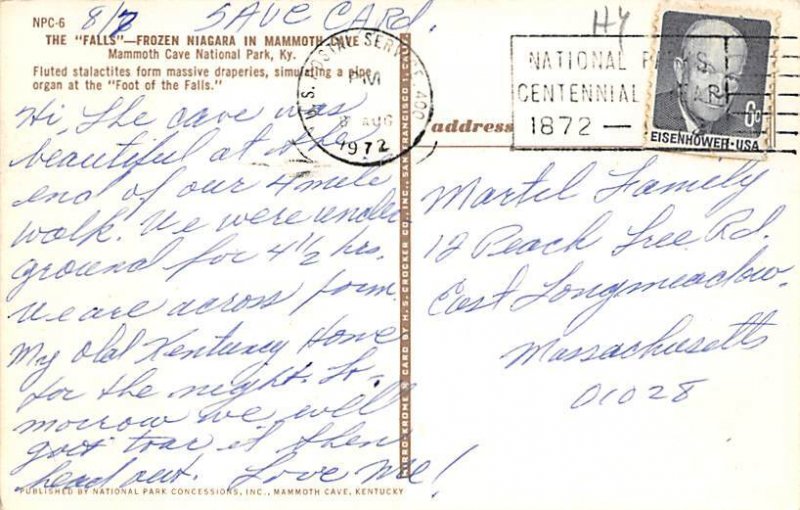 NPC-6
8/7 SAVE CARD.
THE "FALLS"—FROZEN NIAGARA IN MAMMOTH CAVE
Mammoth Cave National Park, Ky.
Fluted stalactites form massive draperies, simulating a pipe
organ at the "Foot of the Falls."
Hi, The cave was
beautiful at the
end of our 4 mile
walk. We were under
ground for 4 1/2 hrs.
We are across form
My Old Kentucky Home
for the night. To-
morrow we will
tour it then
head out. Love Me!
PUBLISHED BY NATIONAL PARK CONCESSIONS, INC., MAMMOTH CAVE, KENTUCKY
MIRRO-KROME® CARD BY H. S. CROCKER CO., INC., SAN FRANCISCO 1, CAL.
U.S. POSTAL SERVICE 400
PM
8 AUG
1972
NATIONAL PARKS
CENTENNIAL YEAR
1872 —
6c
EISENHOWER·USA
address
Martel Family
12 Peach Tree Rd.
East Longmeadow.
Massachusetts
01028